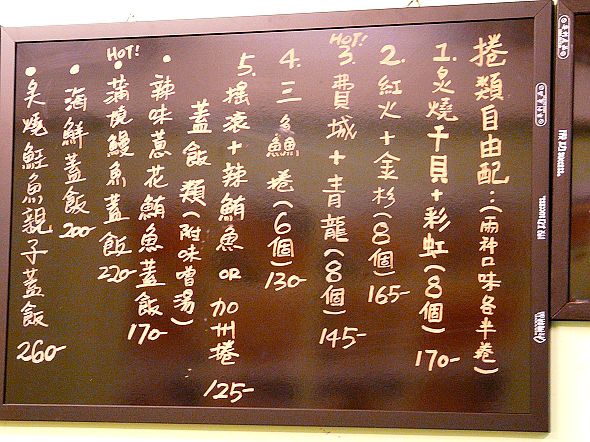 捲類自由配：(兩種口味各半卷)
1. 炙燒干貝+彩虹(8個) 170-
2. 紅火+金杉(8個) 165-
HOT!
3. 費城+青龍(8個) 145-
4. 三色鯛捲(6個) 130-
5. 搖滾+辣鮪魚 OR 加州捲 125-
蓋飯類(附味噌湯)
• 辣味蔥花鮪魚蓋飯 170-
HOT!
• 蒲燒鰻魚蓋飯 220-
• 海鮮蓋飯 200-
• 炙燒鮭魚親子蓋飯 260-